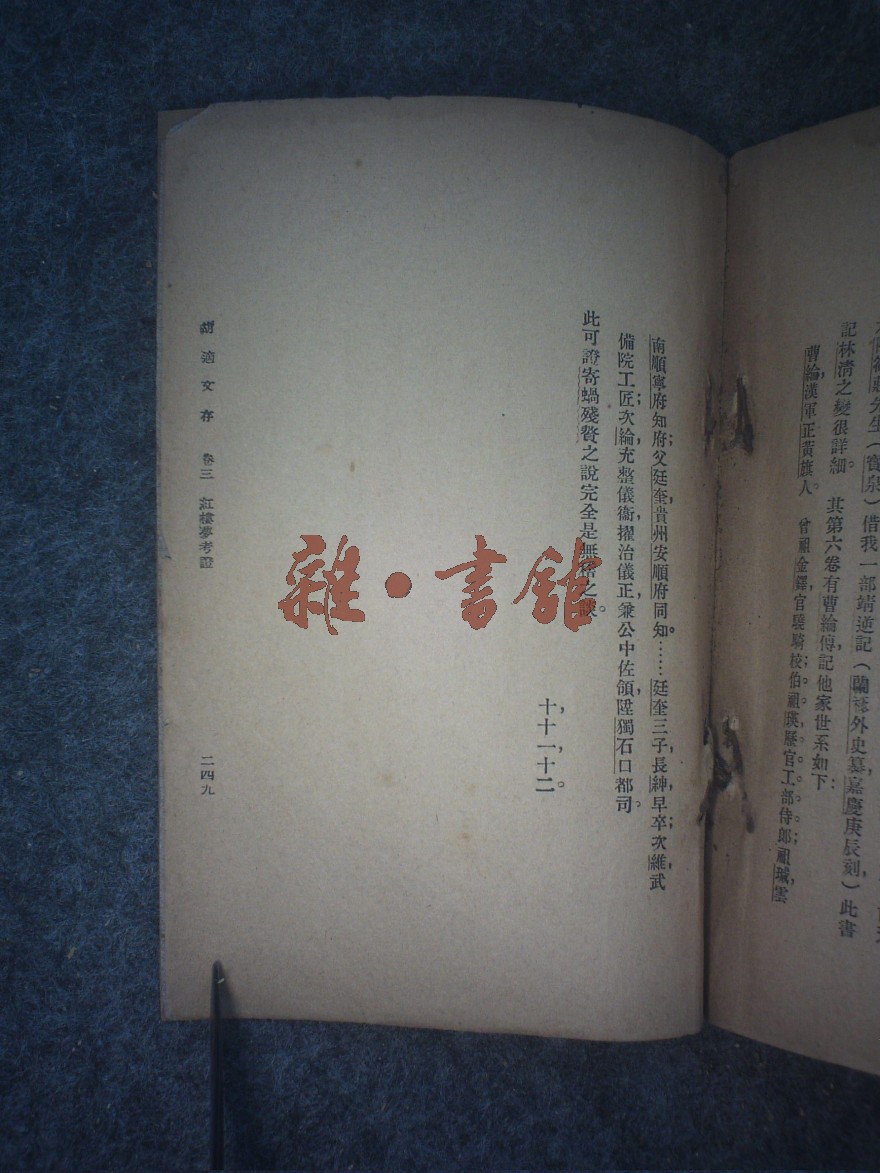 記林清之變很詳細。其第六卷有曹綸傳，記他家世系如下：
曹綸，漢軍正黃旗人。曾祖金鐸，官驍騎校；伯祖瑛，歷官工部侍郎；祖瑊，雲
南順寧府知府；父廷奎，貴州安順府同知。……廷奎三子，長紳，早卒；次維，武
備院工匠；次綸，充整儀衞，擢治儀正，兼公中佐領，陞獨石口都司。
此可證寄蝸殘贅之說完全是無稽之談。
十，十一，十二。
胡適文存 卷三 紅樓夢考證 二四九
雜·書館